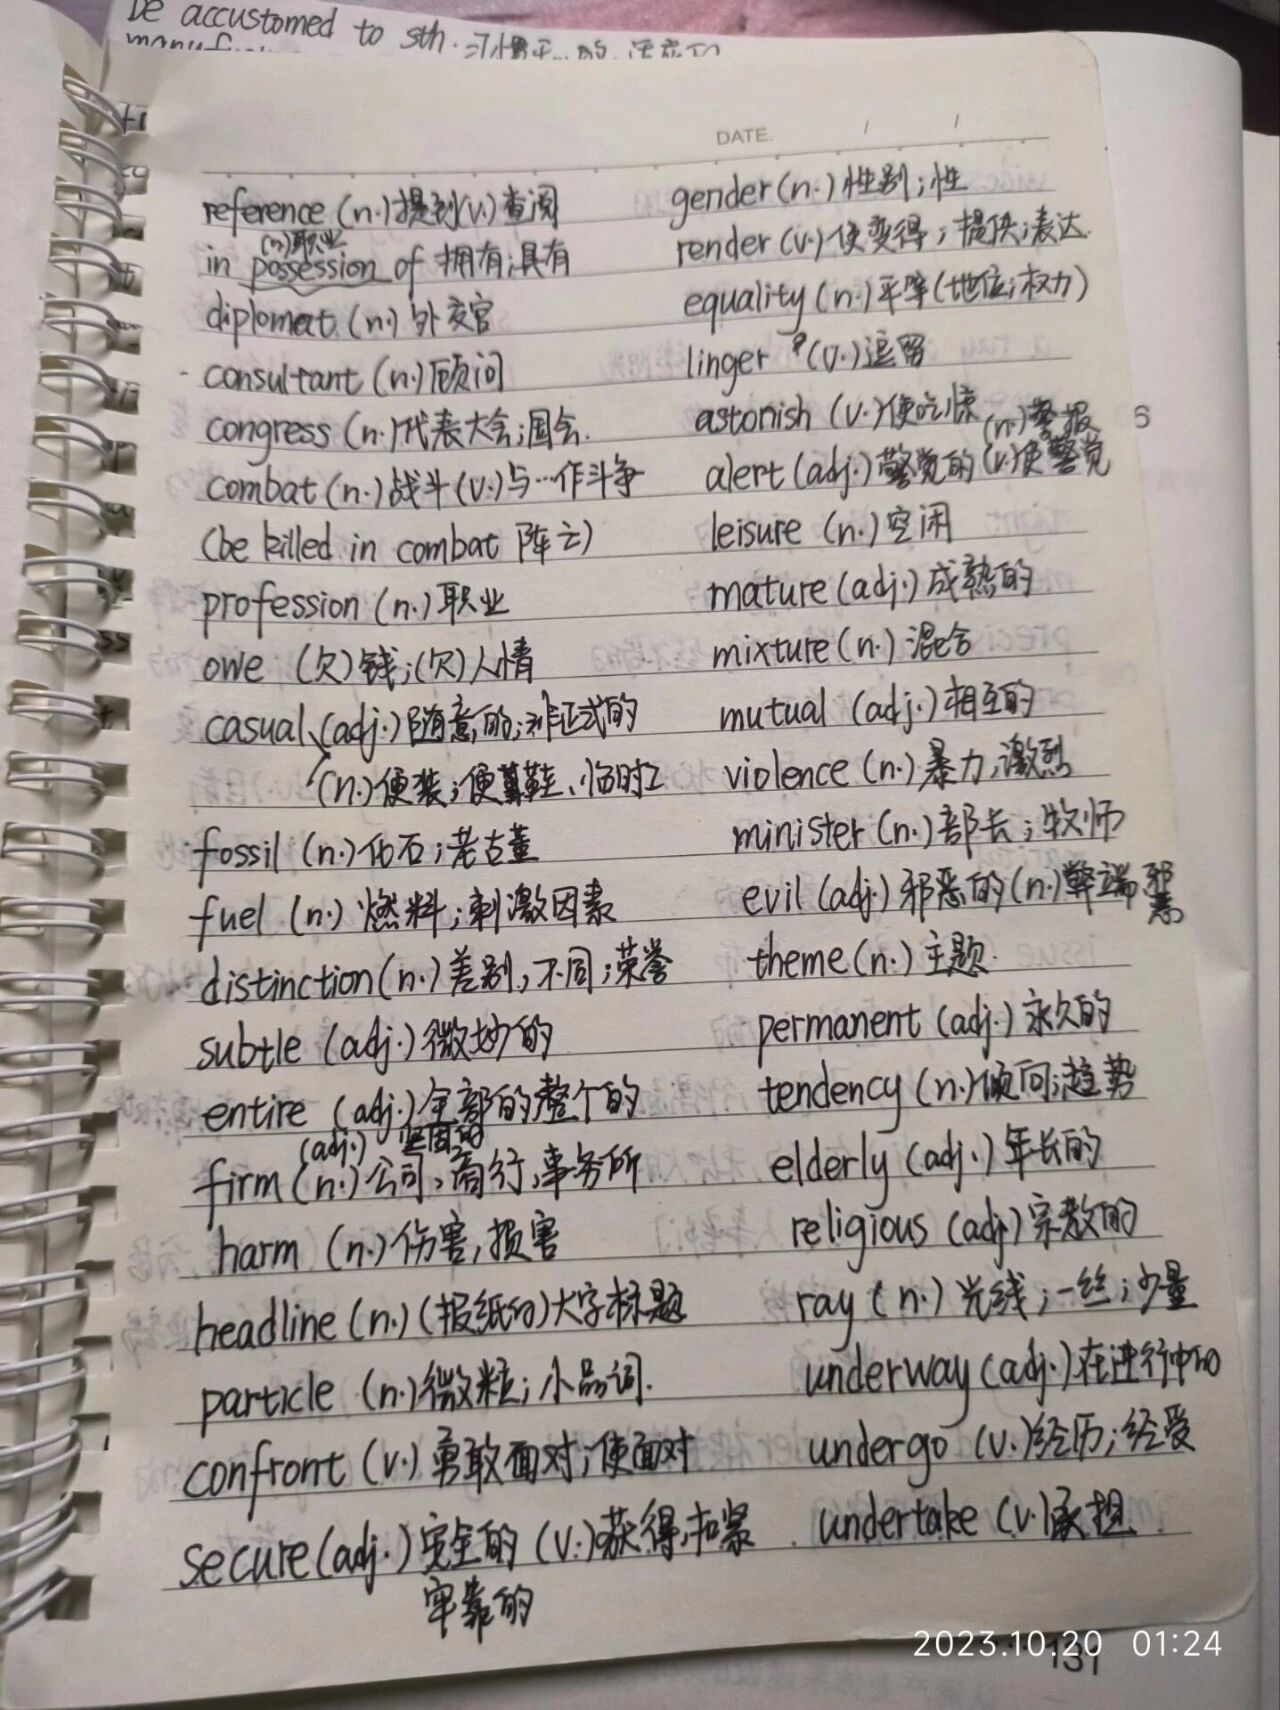 be accustomed to sth.
DATE. / /
reference (n.)提到(v.)查阅
(n.)职业
in possession of 拥有;具有
diplomat (n.)外交官
consultant (n.)顾问
congress (n.)代表大会;国会.
combat (n.)战斗(v.)与…作斗争
(be killed in combat 阵亡)
profession (n.)职业
owe (欠)钱;(欠)人情
casual (adj.)随意的;非正式的
(n.)便装;便鞋、临时工
fossil (n.)化石;老古董
fuel (n.)燃料;刺激因素
distinction(n.)差别,不同;荣誉
subtle (adj.)微妙的
entire (adj.)全部的整个的
(adj.)坚固的
firm (n.)公司,商行,事务所
harm (n.)伤害,损害
headline (n.)(报纸的)大字标题
particle (n.)微粒;小品词.
confront (v.)勇敢面对;使面对
secure(adj.)安全的(v.)获得,扣紧
牢靠的
gender(n.)性别;性
render(v.)使变得;提供;表达.
equality(n.)平等(地位;权力)
linger (v.)逗留
astonish (v.)使吃惊
(n.)警报
alert(adj.)警觉的(v.)使警觉
leisure (n.)空闲
mature(adj.)成熟的
mixture(n.)混合
mutual (adj.)相互的
violence(n.)暴力,激烈
minister(n.)部长;牧师
evil(adj.)邪恶的(n.)弊端 邪恶
theme(n.)主题.
permanent(adj.)永久的
tendency(n.)倾向;趋势
elderly(adj.)年长的
religious(adj.)宗教的
ray(n.)光线;一丝;少量
underway(adj.)在进行中的
undergo (v.)经历;经受
undertake (v.)承担
2023.10.20 01:24
131